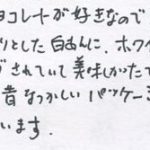 ョコレートが好きなので
りとした白あんに、ホワイ
゙されていて美味しかったで
昔なつかしいパッケー
います.